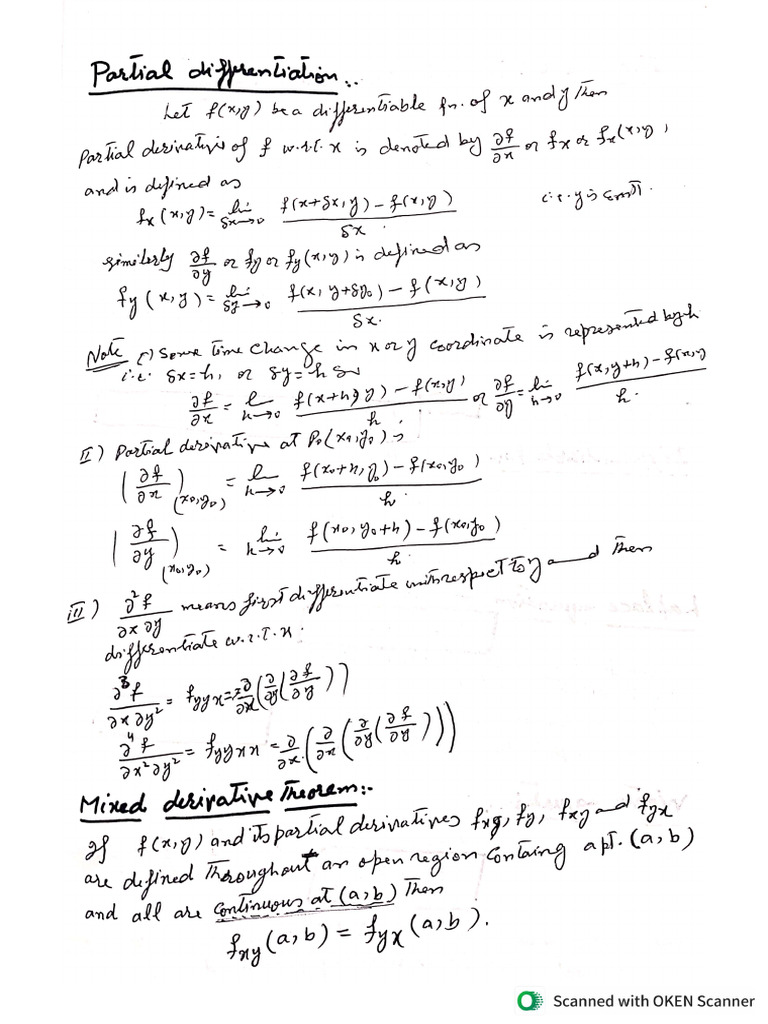 Partial differentiation:.
Let f(x,y) be a differentiable fn. of x and y Then
Partial derivative of f w.r.t. x is denoted by ∂f/∂x or fx or fx(x,y),
and is defined as
fx(x,y) = lim δx→0 (f(x+δx, y) - f(x,y))/δx. i.e. y is constt.
similerly ∂f/∂y or fy or fy(x,y) is defined as
fy(x,y) = lim δy→0 (f(x, y+δy) - f(x,y))/δx.
Note I) Some time change in x or y coordinate is represented by h
i.e. δx=h, or δy=h so
∂f/∂x = lim h→0 (f(x+h, y) - f(x,y))/h or ∂f/∂y = lim h→0 (f(x, y+h) - f(x,y))/h.
II) Partial derivative at P0(x0,y0) is
(∂f/∂x)(x0,y0) = lim h→0 (f(x0+h, y0) - f(x0,y0))/h.
(∂f/∂y)(x0,y0) = lim h→0 (f(x0, y0+h) - f(x0,y0))/h.
III) ∂²f/∂x∂y means first differentiate with respect to y and Then
differentiate w.r.t. x.
∂³f/∂x∂y² = fyyx = ∂/∂x(∂/∂y(∂f/∂y))
∂⁴f/∂x²∂y² = fyyxx = ∂/∂x.(∂/∂x(∂/∂y(∂f/∂y)))
Mixed derivative Theorem:-
If f(x,y) and its partial derivatives fx, fy, fxy and fyx
are defined Throughout an open region containg a pt. (a,b)
and all are continuous at (a,b) Then
fxy(a,b) = fyx(a,b).
Scanned with OKEN Scanner